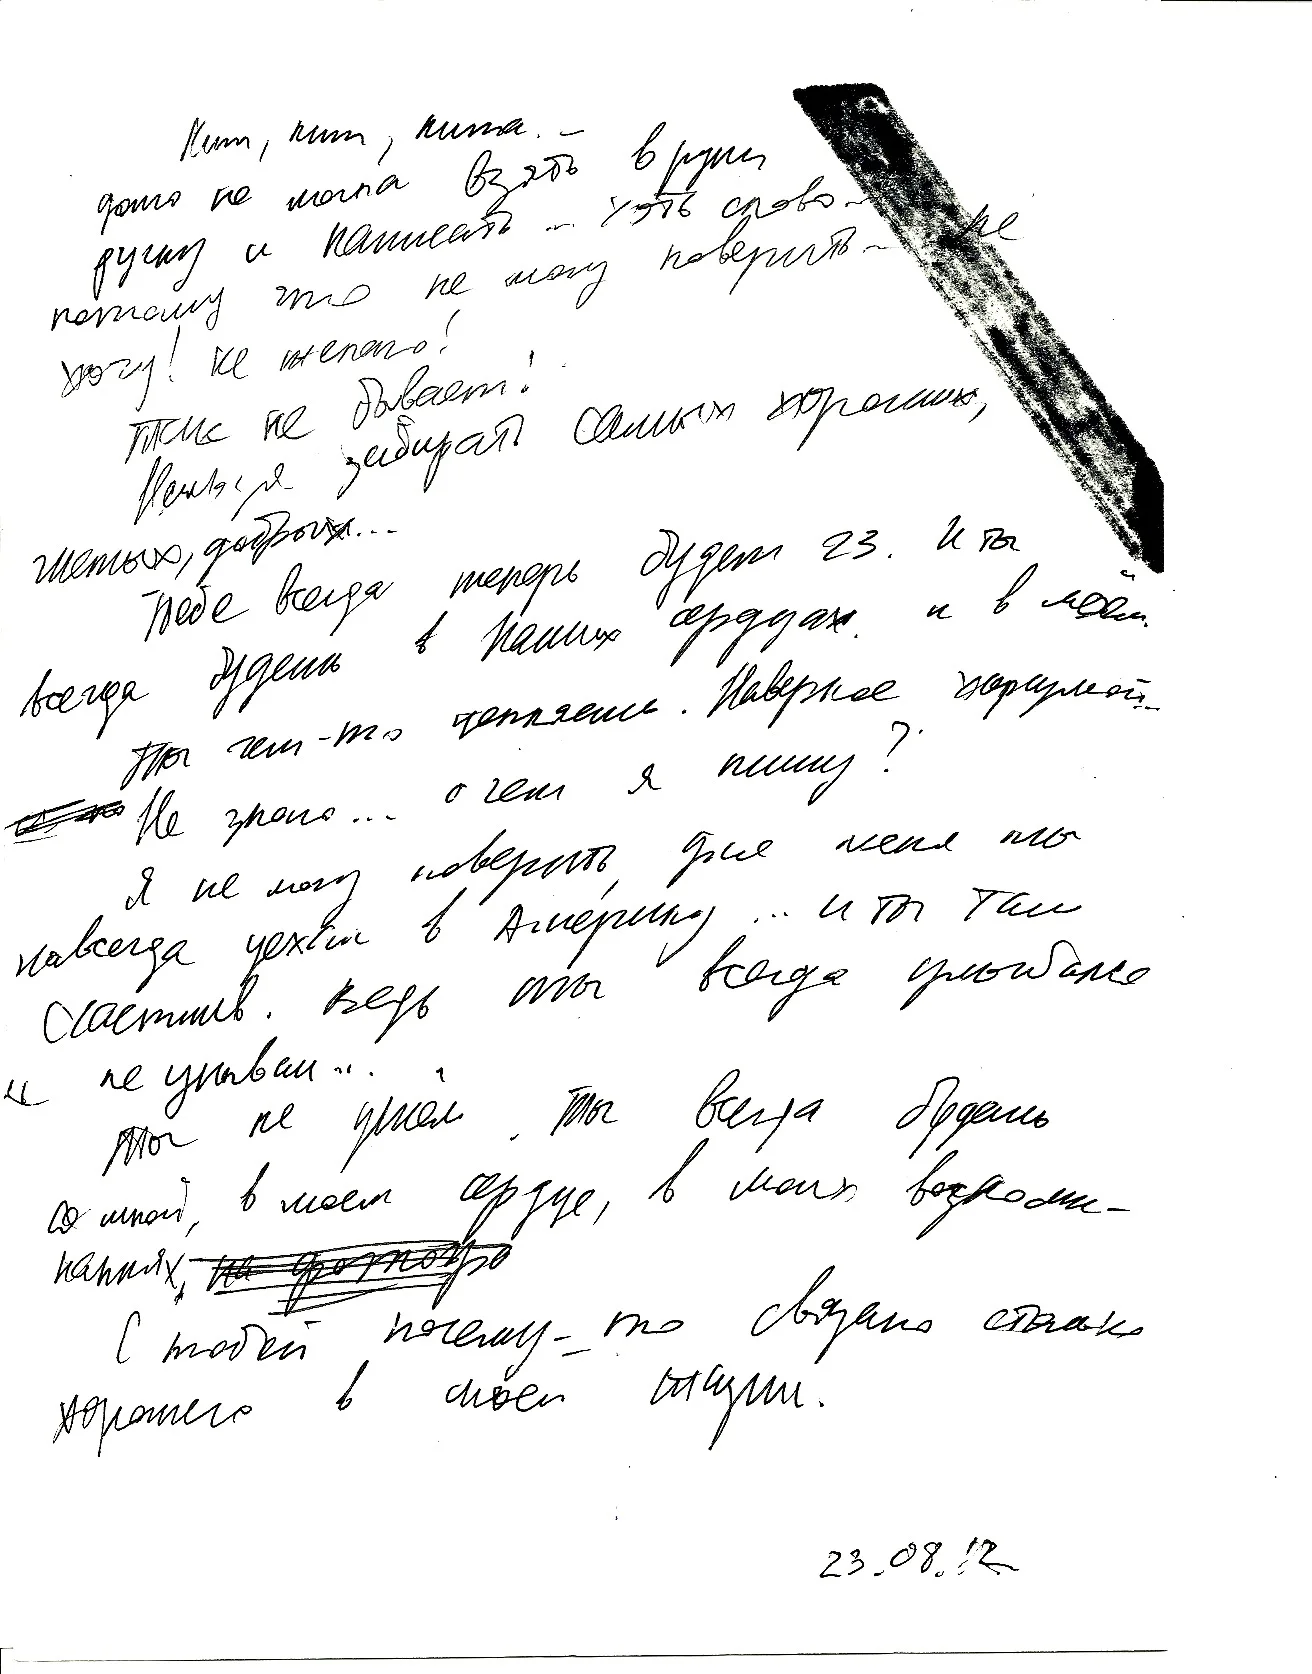 Кит, кит, китя. –
долго не могла взять в руки
ручку и написать... хоть слово –
потому что не могу поверить – не
хочу! не желаю!
Так не бывает!
Нельзя забирать самых хороших,
светлых, добрых...
Тебе всегда теперь будет 23. И ты
всегда будешь в наших сердцах и в моём.
Ты чем-то цепляешь. Наверное харизмой...
Не знаю... о чем я пишу?
Я не могу поверить, для меня ты
навсегда уехал в Америку... и ты там
счастлив. Ведь ты всегда улыбался
и не унывал...
Ты не ушёл. Ты всегда будешь
со мной, в моем сердце, в моих воспоми-
наниях, на фотогра
С тобой почему-то связано столько
хорошего в моей жизни.
23.08.12